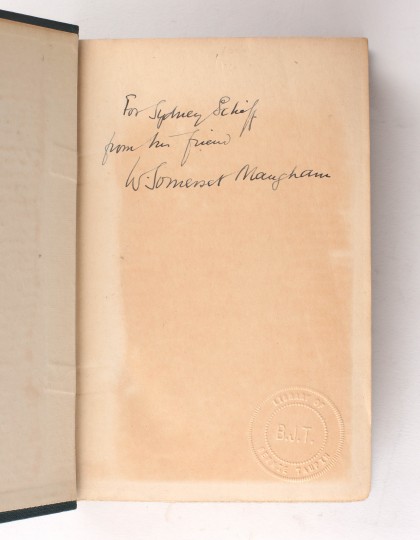 For Sydney Schiff
from his friend
W. Somerset Maugham
LIBRARY OF
B.J.T.